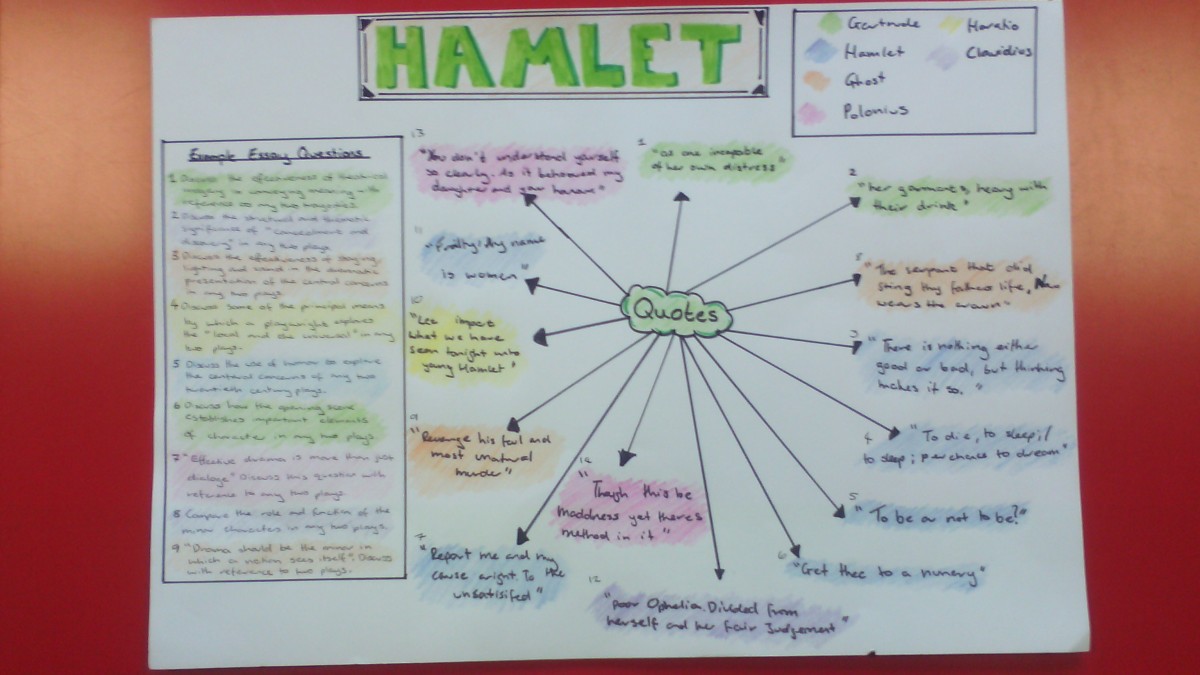 HAMLET
Gertrude
Horatio
Hamlet
Claudius
Ghost
Polonius
Example Essay Questions
1 Discuss the effectiveness of theatrical
imagery in conveying meaning with
reference to any two tragedies.
2 Discuss the structural and thematic
significance of "concealment and
discovery" in any two plays.
3 Discuss the effectiveness of staging,
lighting and sound in the dramatic
presentation of the central concerns
in any two plays.
4 Discuss some of the principal means
by which a playwright explores
the "local and the universal" in any
two plays.
5 Discuss the use of humor to explore
the centeral concerns of any two
twentieth century plays.
6 Discuss how the opening scene
establishes important elements
of character in any two plays.
7 "Effective drama is more than just
dialoge" Discuss this question with
reference to any two plays.
8 Compare the role and function of the
minor characters in any two plays.
9 "Drama should be the mirror in
which a nation sees itself". Discuss
with reference to two plays.
Quotes
13
"You don't understand yourself
so clearly. As it behooved my
daughter and your honour"
1
"as one incapable
of her own distress"
2
"her garments, heavy with
their drink"
8
"The serpant that did
sting thy fathers life, Now
wears the crown"
3
"There is nothing either
good or bad, but thinking
makes it so."
4 "To die, to sleep;/
to sleep; perchance to dream"
5
"To be or not to be?"
6
"Get thee to a nunery"
12
"poor Ophelia. Divided from
herself and her fair Judgement"
14
"Though this be
maddness yet there's
method in it"
7
"Report me and my
cause aright. To the
unsatisifed"
9
"Revenge his foul and
most unatural
murder"
10
"Let impact
what we have
seen tonight unto
young Hamlet"
11
"Frailty, thy name
is women"